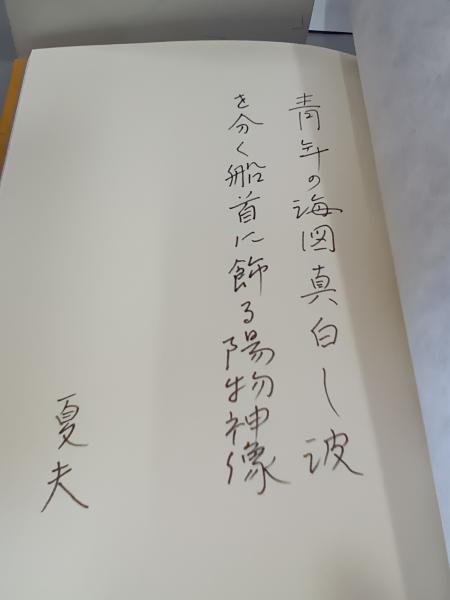 青年の海図真白し波
を分く船首に飾る陽物神像
夏夫